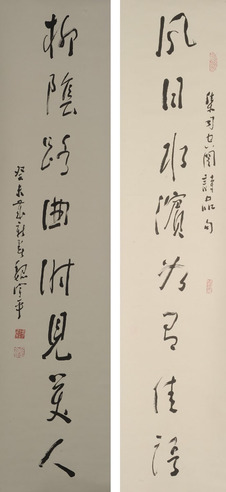 集司空圖詩品句
風日水濱如有佳語
柳陰路曲時見美人
癸未